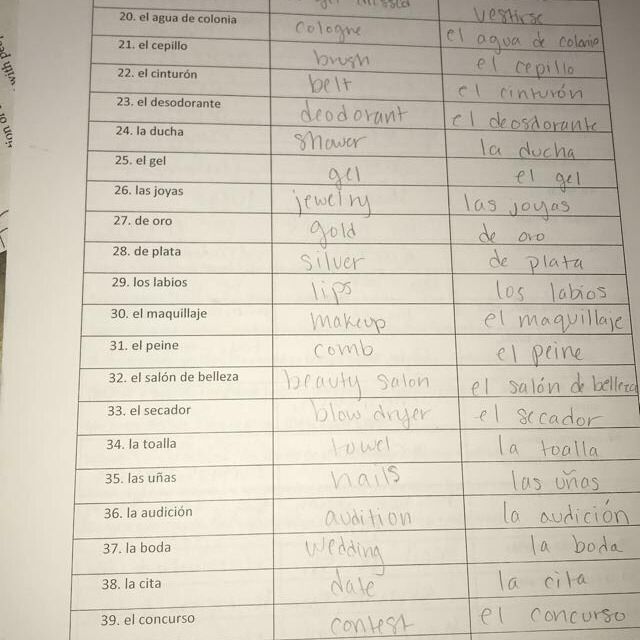 vestirse
20. el agua de colonia cologne el agua de colonia
21. el cepillo brush el cepillo
22. el cinturón belt el cinturón
23. el desodorante deodorant el deosdorante
24. la ducha shower la ducha
25. el gel gel el gel
26. las joyas jewelry las joyas
27. de oro gold de oro
28. de plata silver de plata
29. los labios lips los labios
30. el maquillaje makeup el maquillaje
31. el peine comb el peine
32. el salón de belleza beauty salon el salón de belleza
33. el secador blow dryer el secador
34. la toalla towel la toalla
35. las uñas nails las uñas
36. la audición audition la audición
37. la boda wedding la boda
38. la cita date la cita
39. el concurso contest el concurso